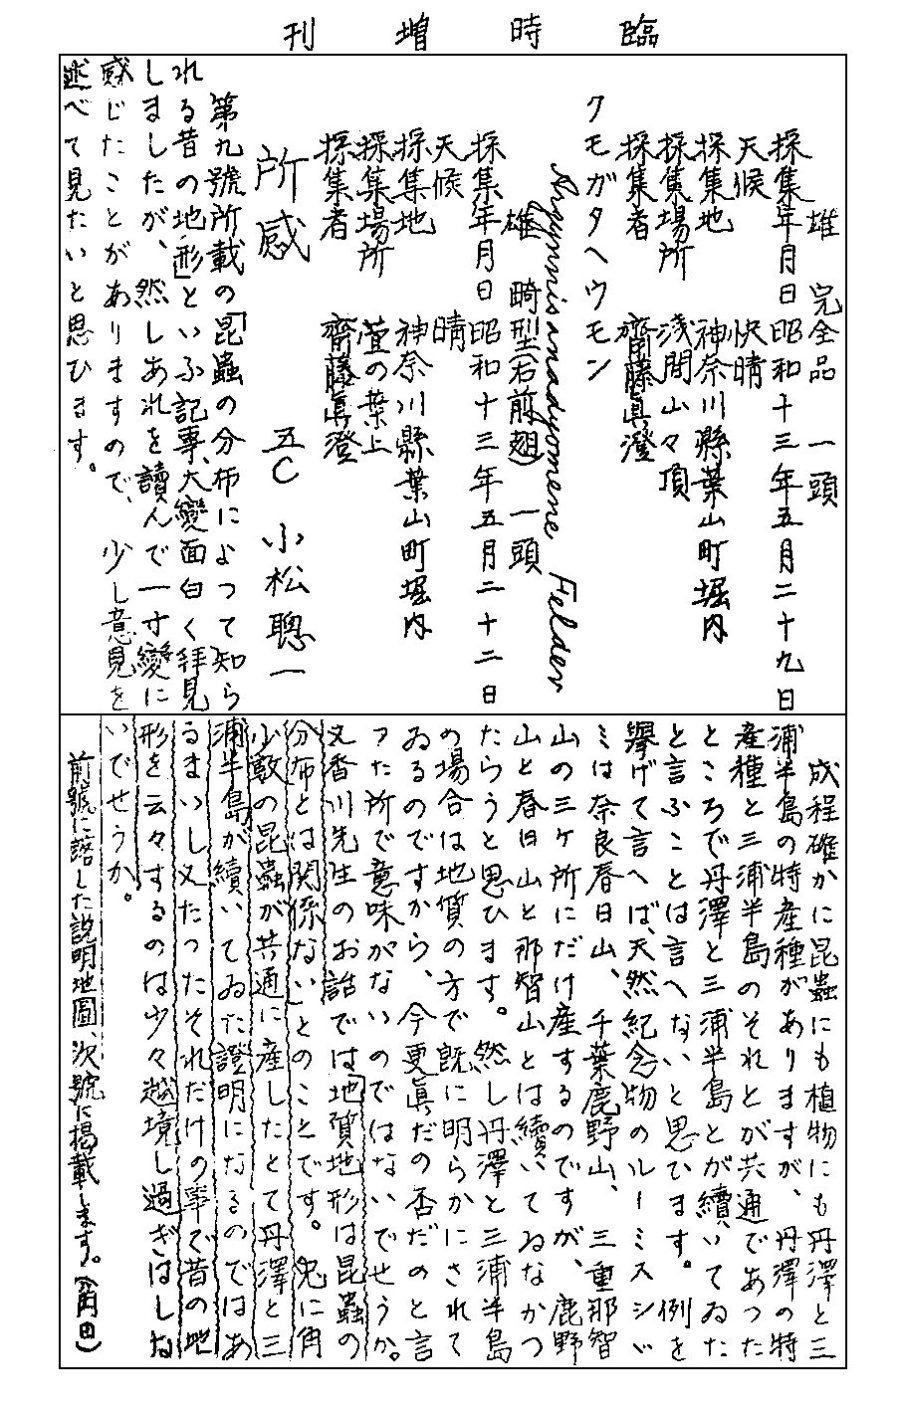 臨時増刊
雄　完全品　一頭
採集年月日　昭和十三年五月二十九日
天候　快晴
採集地　神奈川縣葉山町堀内
採集場所　浅間山々頂
採集者　齋藤眞澄
クモガタヘウモン
Argynnis anadyomene Felder
雄　畸型(右前翅)　一頭
採集年月日　昭和十三年五月二十二日
天候　晴
採集地　神奈川縣葉山町堀内
採集場所　萱の葉上
採集者　齋藤眞澄
所感　五C　小松聰一
第九號所載の「昆蟲の分布によつて知ら
れる昔の地形」といふ記事、大變面白く拝見
しましたが、然しあれを讀んで一寸變に
感じたことがありますので、少し意見を
述べて見たいと思ひます。
成程確かに昆蟲にも植物にも丹澤と三
浦半島の特産種がありますが、丹澤の特
産種と三浦半島のそれとが共通であつた
ところで丹澤と三浦半島とが續いてゐた
と言ふことは言へないと思ひます。例を
擧げて言へば、天然紀念物のルーミスシジ
ミは奈良春日山、千葉鹿野山、三重那智
山の三ヶ所にだけ産するのですが、鹿野
山と春日山と那智山とは續いてゐなかつ
たらうと思ひます。然し丹澤と三浦半島
の場合は地質の方で既に明らかにされて
ゐるのですから、今更眞だの否だのと言
つた所で意味がないのではないでせうか。
又香川先生のお話では「地質地形は昆蟲の
分布とは関係ない」とのことです。兎に角
少數の昆蟲が共通に産したとて丹澤と三
浦半島が續いてゐた證明になるのではあ
るまいし又たつたそれだけの事で昔の地
形を云々するのは少々越境し過ぎはしな
いでせうか。
前號に落した説明地圖、次號に掲載します。(角田)